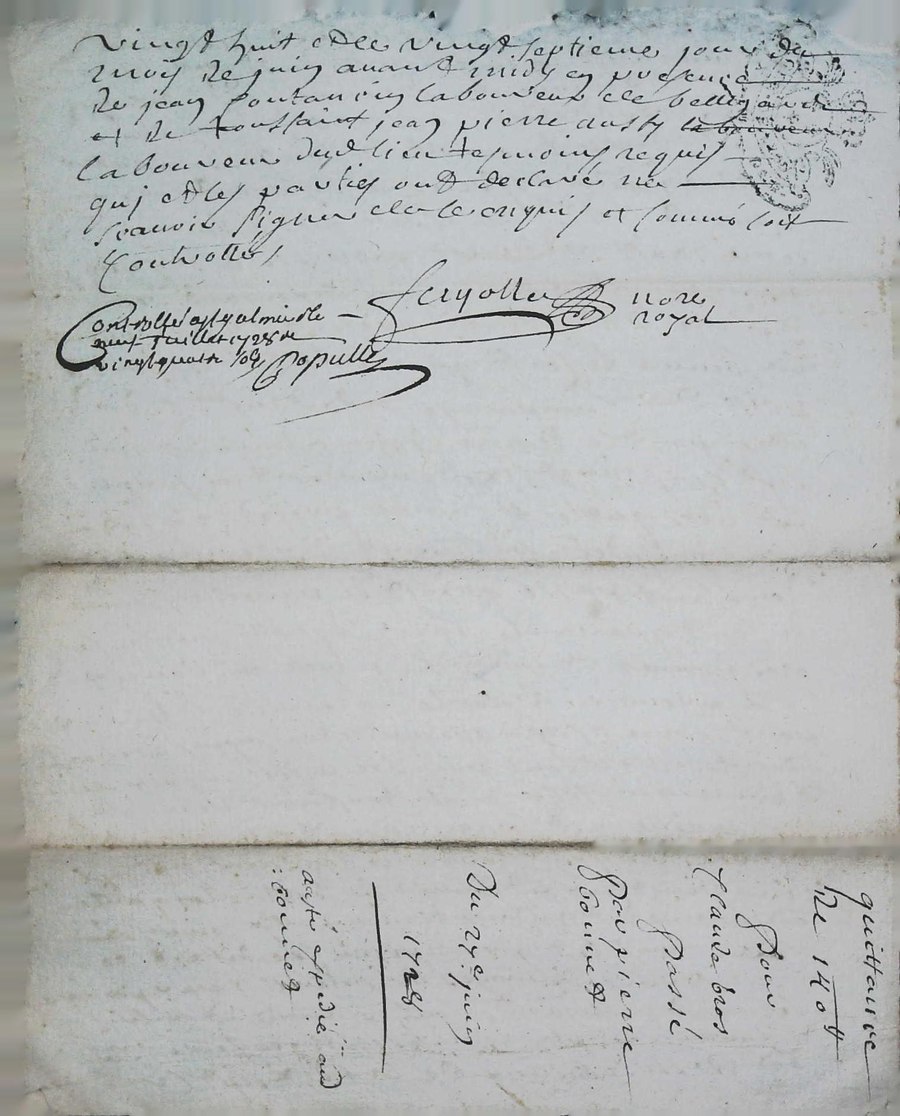 vingt huit et le vingt septieme jour du
moys de juin avant midy en presence
de jean laboureur de bellegarde
et de toussaint jean pierre
laboureur dud lieu tesmoins requis
qui et les parties ont declare ne
scavoir signer de ce enquis et sommé soit
controllé
nore
royal
Controllé a st galmier le
neuf Juillet 1728 R
vingt quatre sos
Populle
quittance
de 140 ₶
Pour
Claude bros
Passé
Par pierre
Du 27e juin
1728
acte expedié aud